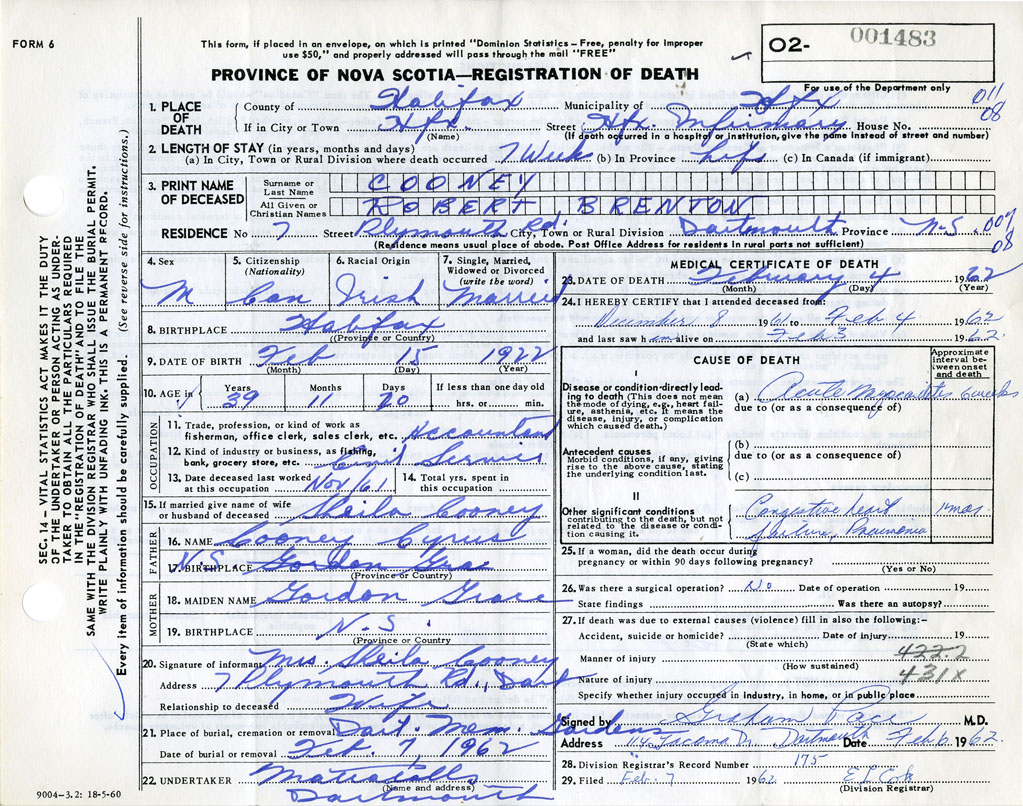 FORM 6
This form, if placed in an envelope, on which is printed "Dominion Statistics – Free, penalty for improper
use $50," and properly addressed will pass through the mail "FREE"
O2- 001483
For use of the Department only
PROVINCE OF NOVA SCOTIA—REGISTRATION OF DEATH
011
08
1. PLACE OF DEATH
County of Halifax Municipality of Hfx
If in City or Town Hfx. (Name) Street Hfx. Infirmary House No.
(If death occurred in a hospital or institution, give the name instead of street and number)
2. LENGTH OF STAY (in years, months and days)
(a) In City, Town or Rural Division where death occurred 7 Week (b) In Province Life (c) In Canada (if immigrant)
3. PRINT NAME OF DECEASED
Surname or Last Name COONEY
All Given or Christian Names ROBERT BRENTON
RESIDENCE No 7 Street Plymouth Rd. City, Town or Rural Division Dartmouth Province N-S. 007
08
(Residence means usual place of abode. Post Office Address for residents in rural parts not sufficient)
4. Sex M
5. Citizenship (Nationality) Can
6. Racial Origin Irish
7. Single, Married, Widowed or Divorced (write the word) Married
8. BIRTHPLACE Halifax
(Province or Country)
9. DATE OF BIRTH Feb 15 1922
(Month) (Day) (Year)
10. AGE in Years 39 Months 11 Days 20 If less than one day old hrs. or min.
OCCUPATION
11. Trade, profession, or kind of work as fisherman, office clerk, sales clerk, etc. Accountant
12. Kind of industry or business, as fishing, bank, grocery store, etc. Civil Service
13. Date deceased last worked at this occupation Nov/61 14. Total yrs. spent in this occupation
15. If married give name of wife or husband of deceased Sheila Cooney
FATHER
16. NAME Cooney Cyrus
17. BIRTHPLACE N.S. Gordon Grac
(Province or Country)
MOTHER
18. MAIDEN NAME Gordon Grace
19. BIRTHPLACE N-S.
(Province or Country)
20. Signature of informant Mrs. Sheila Cooney
Address 7 Plymouth Rd., Dart
Relationship to deceased Wife
21. Place of burial, cremation or removal Dart. Mem. Gardens
Date of burial or removal Feb. 7 1962
22. UNDERTAKER Mattatalls
(Name and address)
Dartmouth
9004–3.2: 18-5-60
MEDICAL CERTIFICATE OF DEATH
23. DATE OF DEATH February 4 1962
(Month) (Day) (Year)
24. I HEREBY CERTIFY that I attended deceased from:
December 8 1961 to Feb 4 1962
and last saw him alive on Feb 3 1962
CAUSE OF DEATH
Approximate interval between onset and death
I
Disease or condition directly leading to death (This does not mean the mode of dying, e.g., heart failure, asthenia, etc. It means the disease, injury, or complication which caused death.)
(a) Acute Myocarditis 6 weeks
due to (or as a consequence of)
Antecedent causes
Morbid conditions, if any, giving rise to the above cause, stating the underlying condition last.
(b)
due to (or as a consequence of)
(c)
II
Other significant conditions contributing to the death, but not related to the disease or condition causing it.
Congestive Heart
failure, Pneumonia
25. If a woman, did the death occur during
pregnancy or within 90 days following pregnancy?
(Yes or No)
26. Was there a surgical operation? No Date of operation 19
State findings Was there an autopsy?
27. If death was due to external causes (violence) fill in also the following:–
Accident, suicide or homicide? Date of injury 19
(State which)
Manner of injury 422.2
(How sustained)
Nature of injury 431x
Specify whether injury occurred in industry, in home, or in public place
Signed by Graham Pace M.D.
Address 114 Tacoma Dr Dartmouth Date Feb 6 1962.
28. Division Registrar's Record Number 175
29. Filed Feb. 7 1962
(Division Registrar)
SEC. 14 – VITAL STATISTICS ACT MAKES IT THE DUTY
OF THE UNDERTAKER OR PERSON ACTING AS UNDER-
TAKER TO OBTAIN ALL THE PARTICULARS REQUIRED
IN THE "REGISTRATION OF DEATH" AND TO FILE THE
SAME WITH THE DIVISION REGISTRAR WHO SHALL ISSUE THE BURIAL PERMIT.
WRITE PLAINLY WITH UNFADING INK. THIS IS A PERMANENT RECORD.
Every item of information should be carefully supplied. (See reverse side for instructions.)